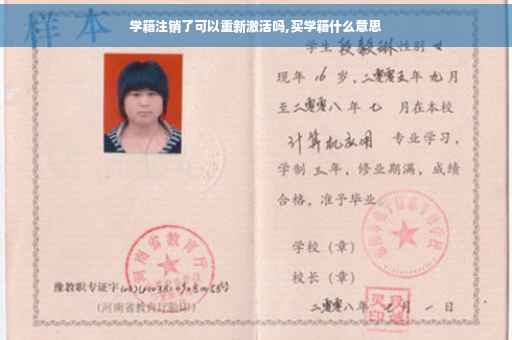 学籍注销了可以重新激活吗,买学籍什么意思
样本
学生段毅琳性别女
现年16岁,二零零五年九月
至二零零八年七月在本校
计算机应用 专业学习,
学制三年,修业期满,成绩
合格,准予毕业。
学校（章）
校长（章）
二零零八年 月一日
河南省教育厅
豫教职专证字
(河南省教育厅验印)